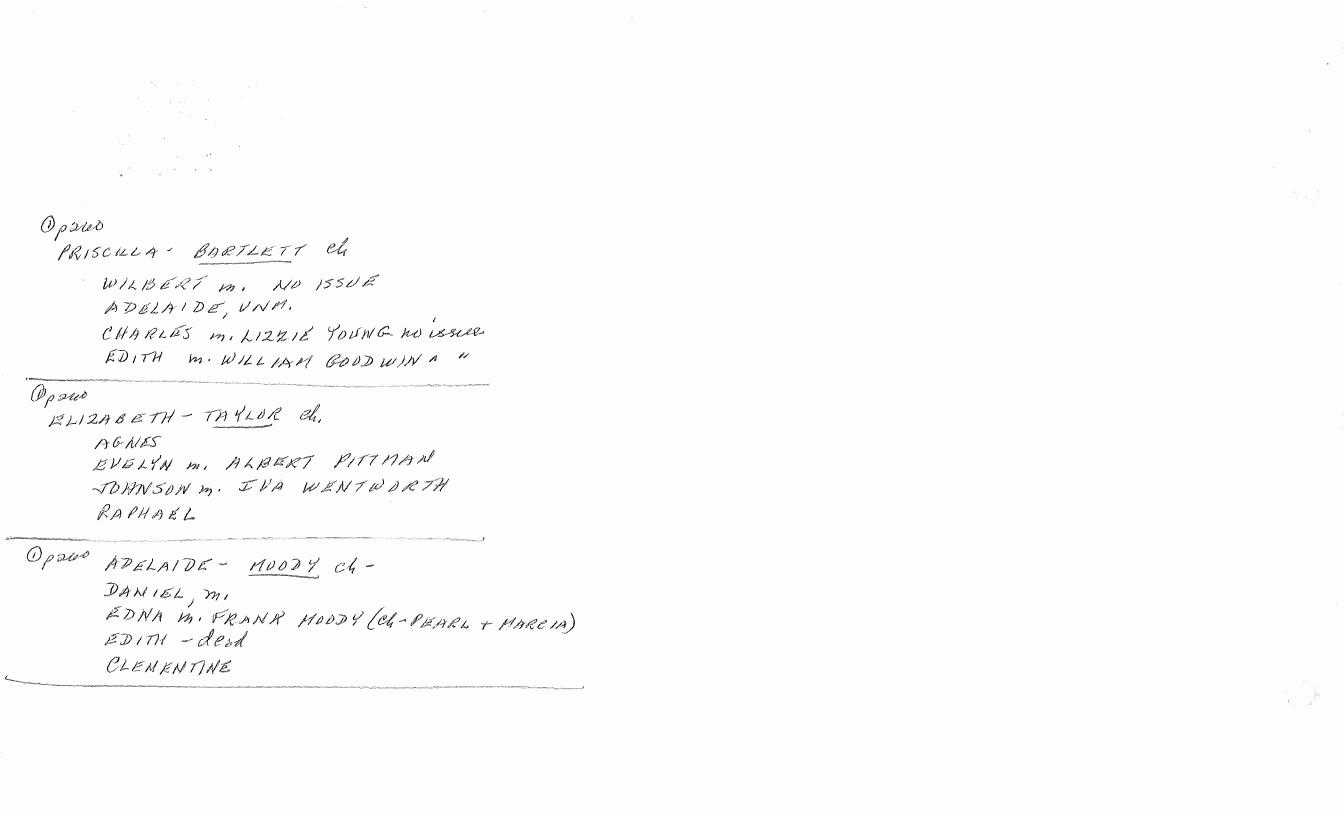 ① p260
PRISCILLA - BARTLETT ch
WILBERT m. NO ISSUE
ADELAIDE, UNM.
CHARLES m. LIZZIE YOUNG no issue
EDITH m. WILLIAM GOODWIN " "
① p260
ELIZABETH - TAYLOR ch.
AGNES
EVELYN m. ALBERT PITTMAN
JOHNSON m. IVA WENTWORTH
RAPHAEL
① p260 ADELAIDE - MOODY ch -
DANIEL, m.
EDNA m. FRANK MOODY (ch - PEARL + MARCIA)
EDITH - dead
CLEMENTINE